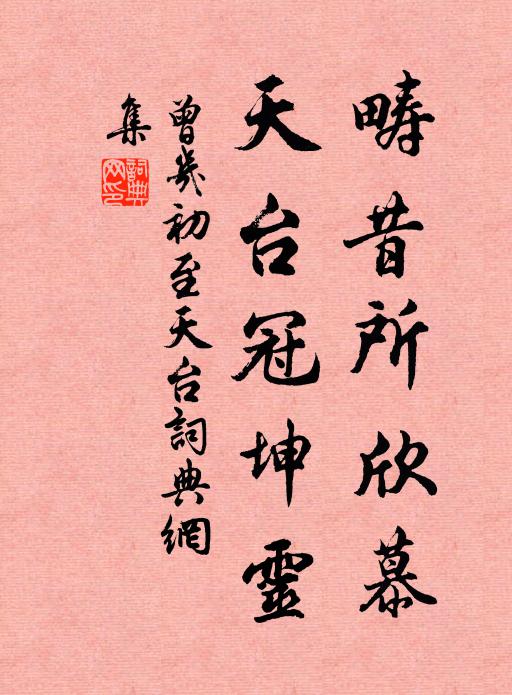 疇昔所欣慕
天台冠坤靈
曾幾初至天台詞典網
集
詞典網印